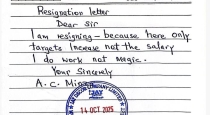 Resignation letter
Dear Sir
I am resigning - because here only
targets Increase not the salary
I do work not magic.
Your Sincerely
A. C. Min
14 OCT 2025